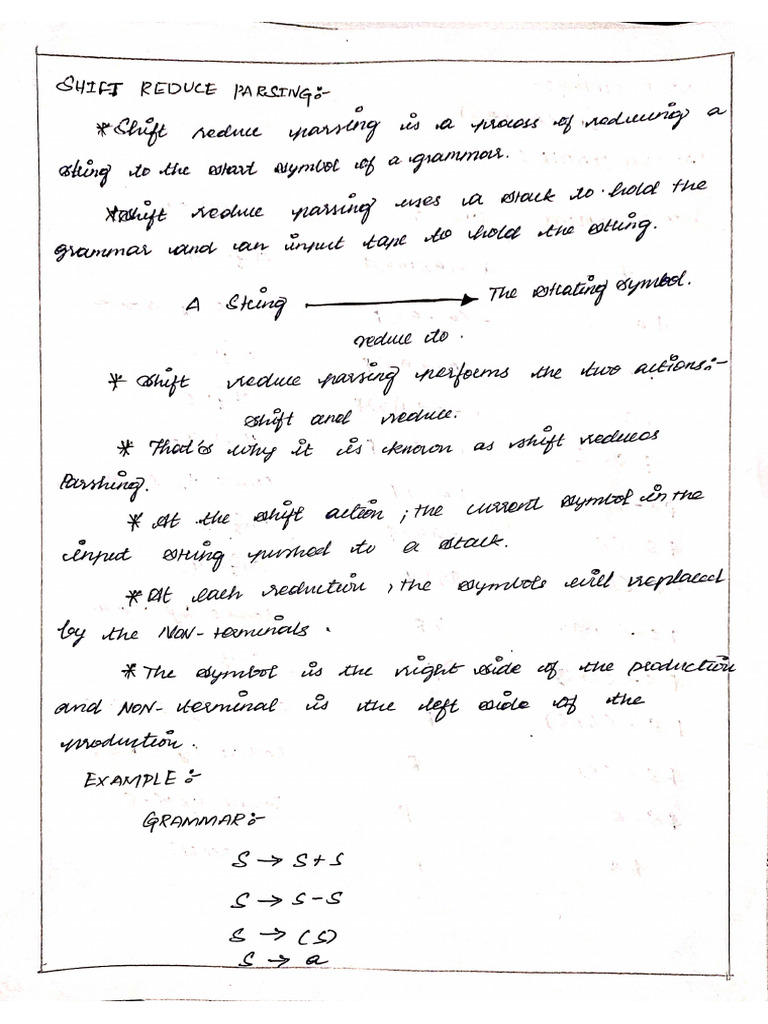 SHIFT REDUCE PARSING:-
* Shift reduce parsing is a process of reducing a
string to the start symbol of a grammar.
* Shift reduce parsing uses a stack to hold the
grammar and an input tape to hold the string.
A String → The strating symbol.
reduce to.
* Shift reduce parsing performs the two actions:-
shift and reduce.
* That's why it is known as shift reduces
Parshing.
* At the shift action, the current symbol in the
input string pushed to a stack.
* At each reduction, the symbols will replaced
by the NON-terminals.
* The symbol is the right side of the production
and NON-terminal is the left side of the
production.
EXAMPLE:-
GRAMMAR:-
S → S+S
S → S-S
S → (S)
S → a